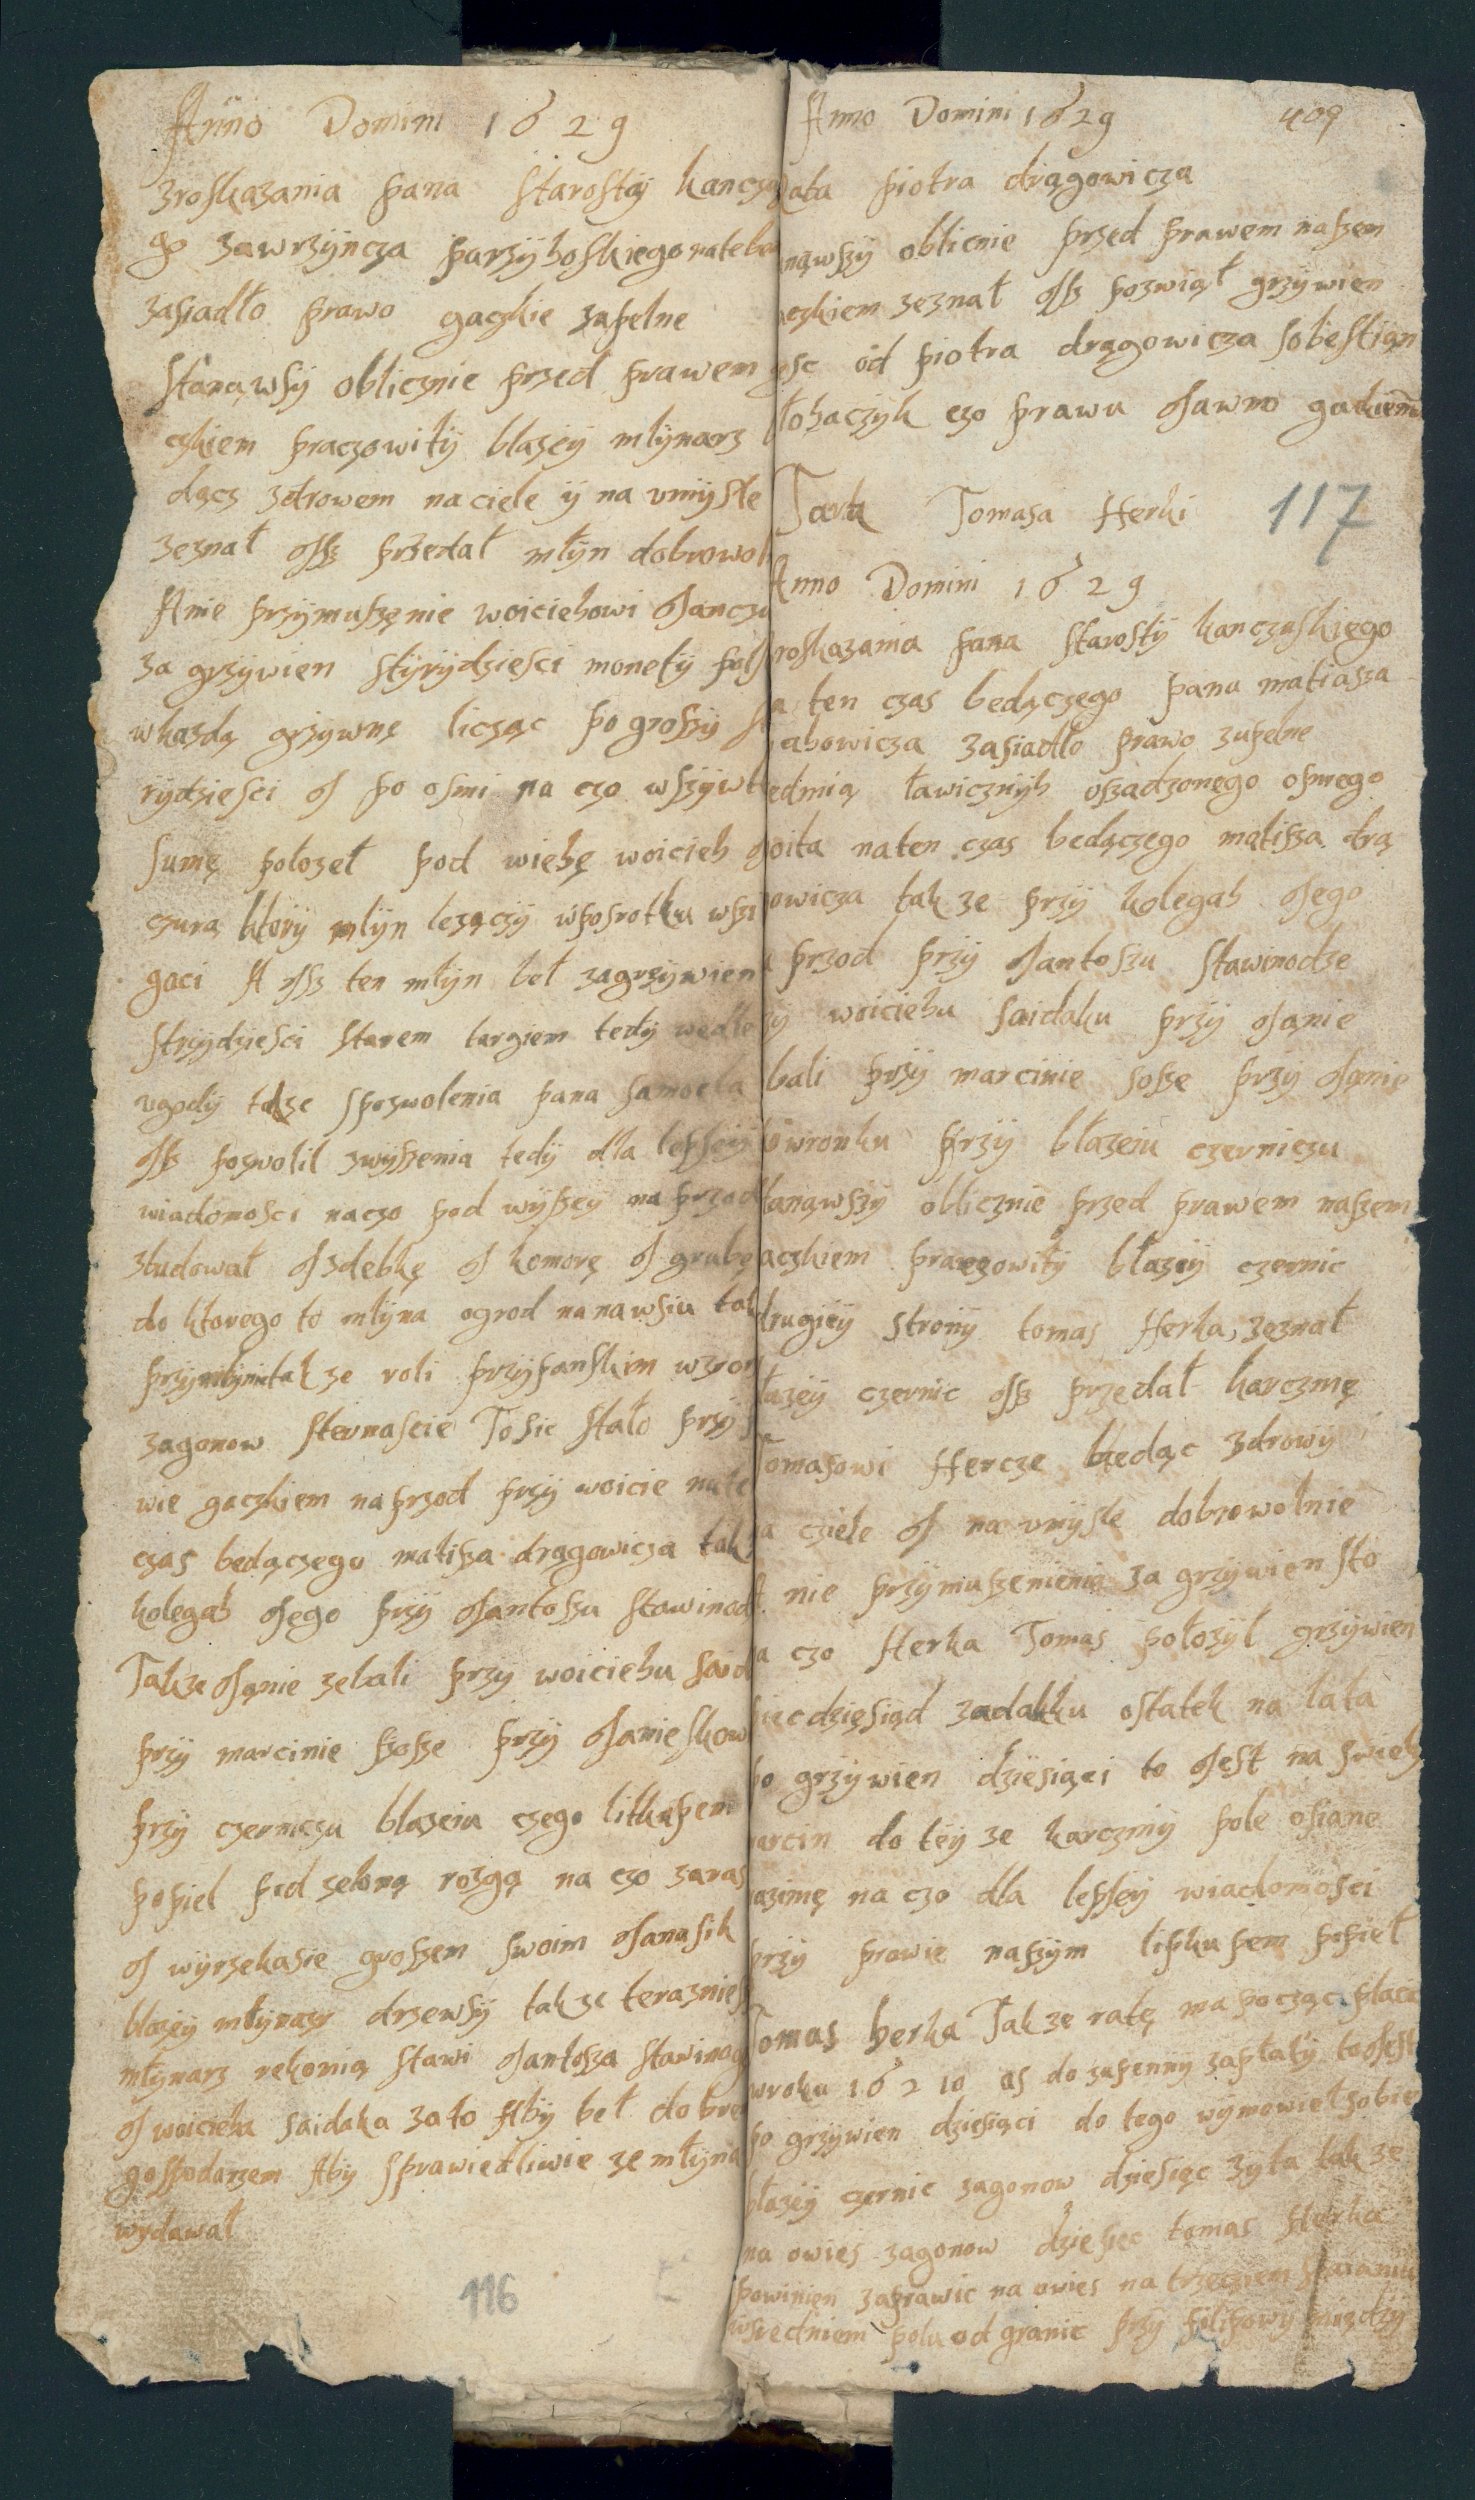 Anno Domini 1629
zroskazania pana starosty kancza
go zawrzyncza parzyhoskiego nate
zasiadło prawo gaczkie zupelne
stanąwsy oblicznie przed prawem
czkiem praczowity blazey młynarz
dącz zdrowem na ciele y na umysle
zeznał ysz przedał młyn dobrowol
A nie przymuszenie woiciehowi Janczu
za grzywien styrydziesci monety pols
wkazdą grzywnę licząc po groszy
rydziesci y po osmi na czo wszytk
sumę polozeł pod wiehę woicieh
czura ktory młyn lezączy wposrotku wszi
gaci A ysz ten młyn beł zagrzywien
strzydziesci starem targiem tedy wedle
ugody tesz spozwolenia pana samoela
ysz pozwolil zwyszenia tedy dla lepszey
wiadomosci na czo pod wyszey na przod
zbudował yzdebkę y komorę y grubę
do ktorego to młyna ogrod na nawsiu tak
przymłynie takze roli przypanskim
zagonow sternascie To sie stało przy
wie gaczkiem naprzod przy woicie nate
czas będączego matisza drągowicza tak
kolegah Jego przy Jantoszu stawinod
Takze Janie zebali przy woiciehu said
przy marcinie szosze przy Janie skow
przy czerniczu blazeiu czego litkupem
popiel pod zeloną rozgą na czo zaras
y wyrzekasie groszem swoim Janasik
blazey młynarz drzewsy takze teraznies
młynarz rekomią stawi Jantosza stawinog
y woicieha saidaka zato Aby beł dobre
gospodarzem Aby sprawiedliwie ze młyna
wydawał
116
Anno Domini 1629 409
ata piotra drągowicza
nąwszy oblicnie przed prawem naszem
aczkiem zeznał ysz pozwiął grzywien
od piotra drągowicza sobestian
łohaczyk czo prawu Jawno gackiem
Tark Tomasa Herki 117
Anno Domini 1629
roskazania pana starosty kanczuskiego
a ten czas bedączego pana matiasza
abowicza zasiadło prawo zupelne
edmią ławicznyh oszadzonego osmego
oita naten czas bedączego matisza drą
owicza takze przy kolegah Jego
przod przy Jantoszu stawinodze
y woiciehu saidaku przy Janie
bali przy marcinie sosze przy Janie
owronku przy błazeiu czerniczu
tanąwszy oblicznie przed prawem naszem
aczkiem praczowity błazey czernic
drugiey strony tomas Herka zeznał
łazey czernic ysz przedał karczmę
Tomasowi Hercze będąc zdrowy
a cziele y na umysle dobrowolnie
A nie przymuszenienie za grzywien sto
a czo Herka Tomas położył grzywien
piecdziesiąd zadatku ostatek na lata
po grzywien dziesiąci to Jest na swiety
arcin do tey ze karczmy pole osiane
azimę na czo dla lepszey wiadomosci
przy prawie naszym litkupem popieł
Tomas herka Takze ratę ma począc płacic
wroku 16210 as do zupenny zapłaty to Jest
po grzywien dziesiąci do tego wymowieł sobie
błazey czernic zagonow dziesięc zyta takze
na owies zagonow dziesiec tomas Herka
powinien zaprawic na owies na trzeciem staianiu
wsredniem polu od granic przy filipowy miądzy